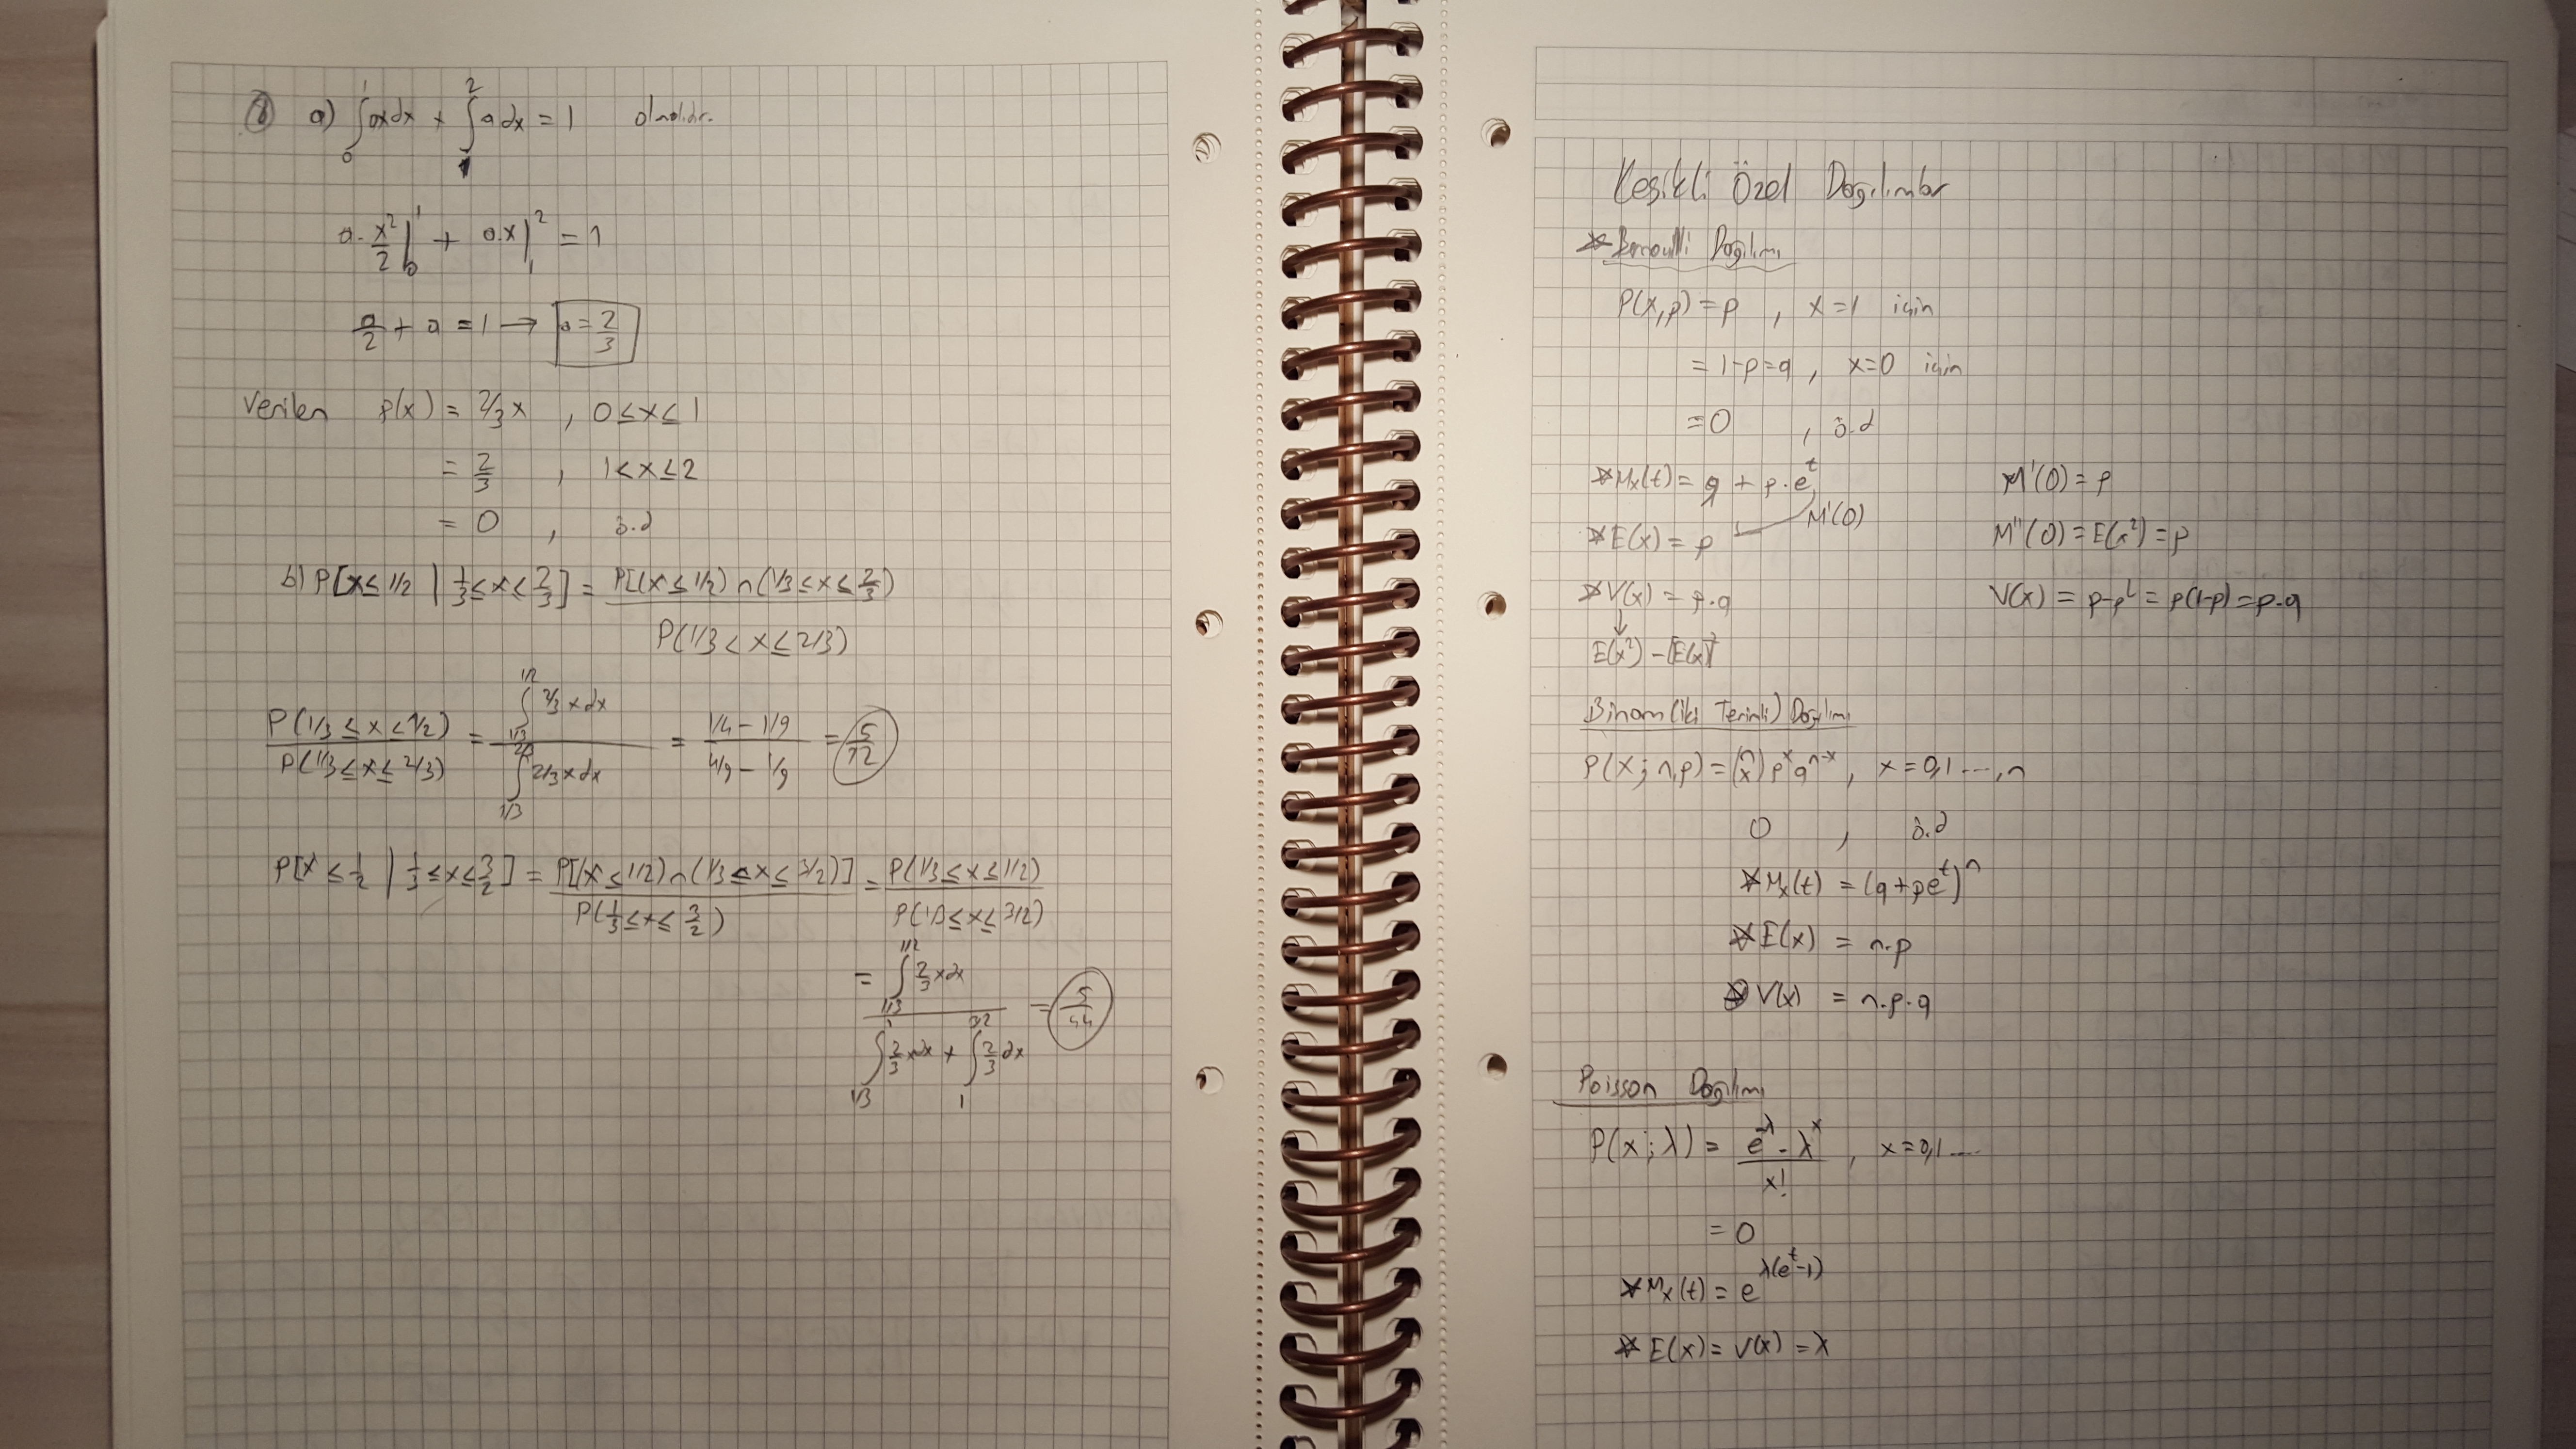 8 a) ∫₀¹ ax dx + ∫₁² a dx = 1 olmalıdır.
a. x²/2 |₀¹ + a.x |₁² = 1
a/2 + a = 1 → a = 2/3
Verilen p(x) = 2/3 x , 0 ≤ x ≤ 1
= 2/3 , 1 < x ≤ 2
= 0 , ö.d
b) P[x ≤ 1/2 | 1/3 ≤ x ≤ 2/3] = P[(x ≤ 1/2) ∩ (1/3 ≤ x ≤ 2/3) / P(1/3 < x ≤ 2/3)
P(1/3 ≤ x ≤ 1/2) / P(1/3 ≤ x ≤ 2/3) = ∫_{1/3}^{1/2} 2/3 x dx / ∫_{1/3}^{2/3} 2/3 x dx = (1/4 - 1/9) / (4/9 - 1/9) = 5/12
P[x ≤ 1/2 | 1/3 ≤ x ≤ 3/2] = P[(x ≤ 1/2) ∩ (1/3 ≤ x ≤ 3/2)] / P(1/3 ≤ x ≤ 3/2) = P(1/3 ≤ x ≤ 1/2) / P(1/3 ≤ x ≤ 3/2)
= ∫_{1/3}^{1/2} 2/3 x dx / ∫_{1/3}^{1} 2/3 x dx + ∫_{1}^{3/2} 2/3 dx = 5/44
Kesikli Özel Dağılımlar
* Bernoulli Dağılımı
P(x,p) = p , x = 1 için
= 1-p = q , x = 0 için
= 0 , ö.d
* Mx(t) = q + p.e^t
M'(0) = p
* E(x) = p M'(0)
M''(0) = E(x²) = p
* V(x) = p.q
V(x) = p-p² = p(1-p) = p.q
↓
E(x²) - [E(x)]²
Binom (iki Terimli) Dağılımı
P(x; n,p) = (n x) p^x q^{n-x} , x = 0,1 ...., n
0 , ö.d
* Mx(t) = (q + pe^t)^n
* E(x) = n.p
* V(x) = n.p.q
Poisson Dağılımı
P(x; λ) = e^{-λ} . λ^x / x! , x = 0,1 ....
= 0
* Mx(t) = e^{λ(e^t - 1)}
* E(x) = V(x) = λ